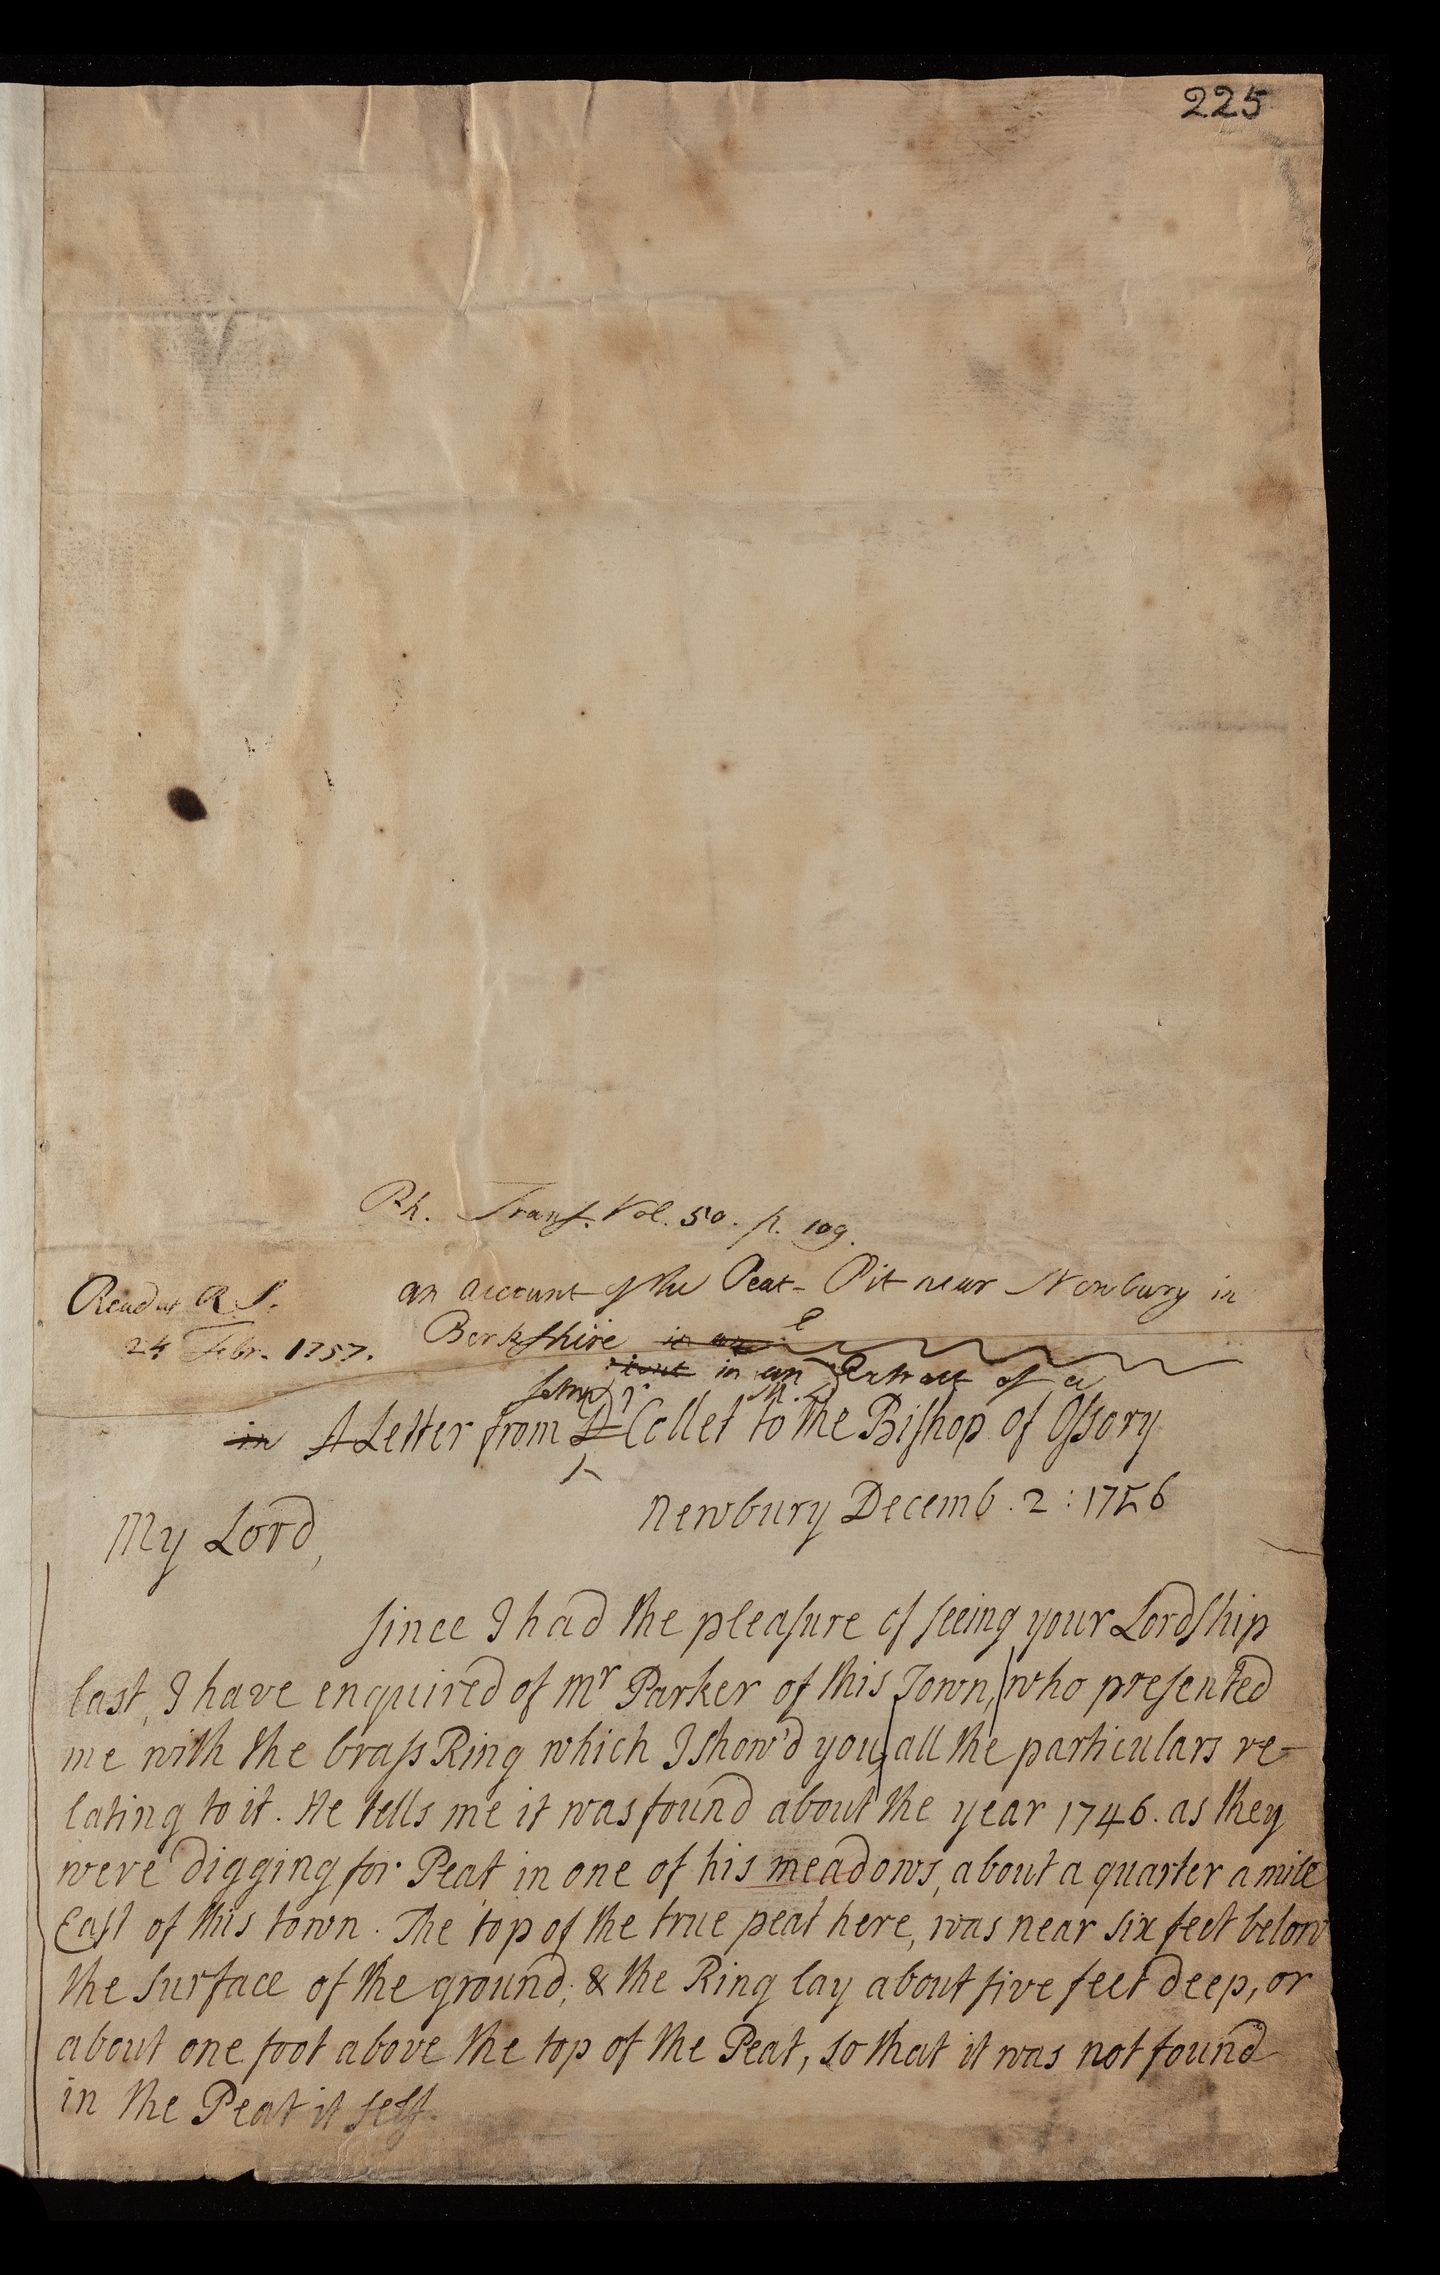 225
Ph. Trans. Vol. 50. p. 109.
Read at R. S.
24 Febr. 1757.
an account of the Peat-Pit near Newbury in
Berkshire in an
in an Extract of a
John
in A Letter from Dr Collet to the Bishop of Ossory
Newbury Decemb. 2: 1756
My Lord,
since I had the pleasure of seeing your Lordship
last, I have enquired of Mr Parker of this Town, who presented
me with the brass Ring which I show'd you, all the particulars re-
lating to it. He tells me it was found about the year 1746. as they
were digging for Peat in one of his meadows, about a quarter a mile
East of this town. The top of the true peat here, was near six feet below
the surface of the ground; & the Ring lay about five feet deep, or
about one foot above the top of the Peat, so that it was not found
in the Peat it self.